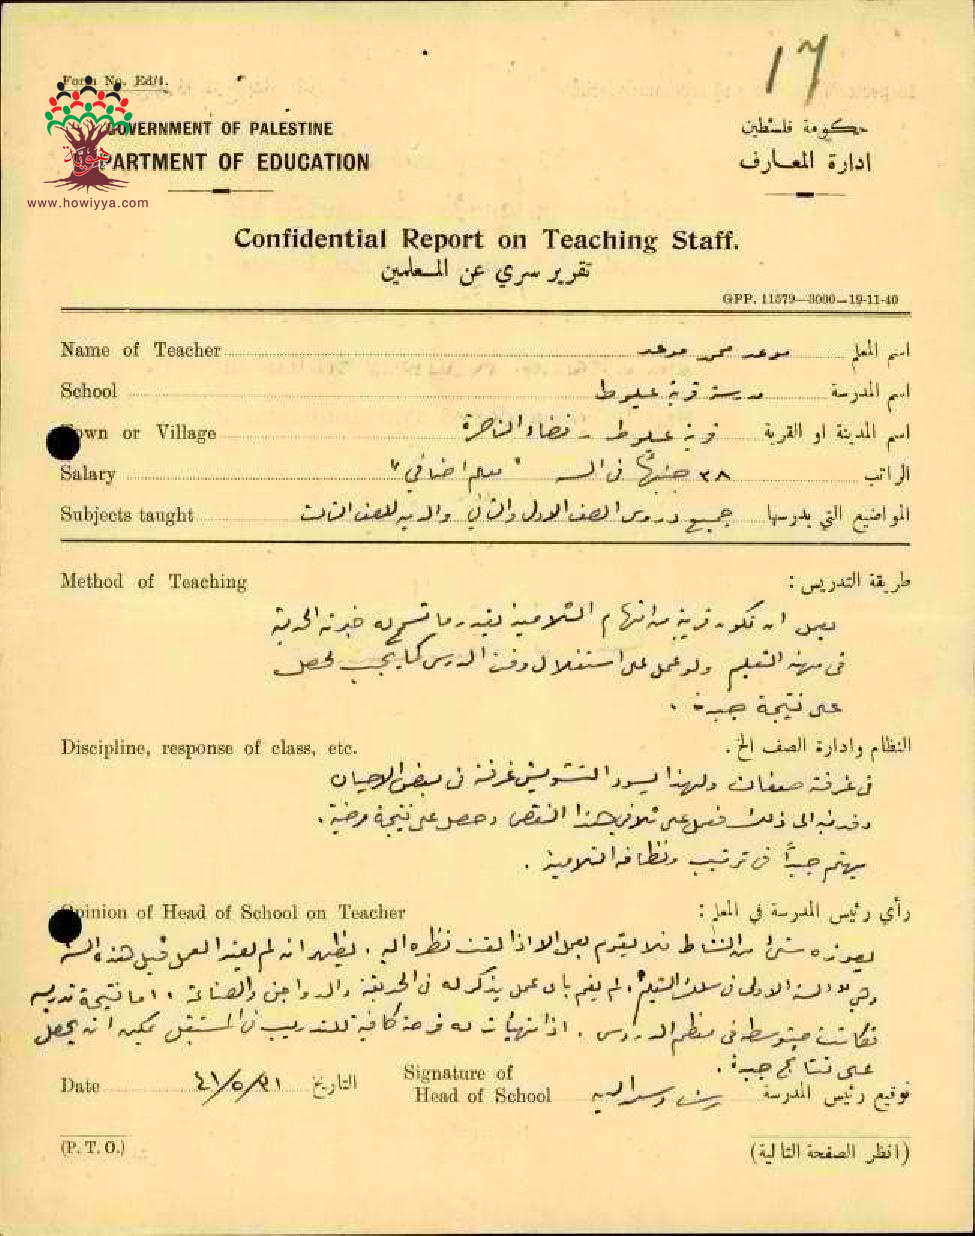 17
Form No. Ed/4.
GOVERNMENT OF PALESTINE
حكومة فلسطين
DEPARTMENT OF EDUCATION
ادارة المعارف
هوية
www.howiyya.com
Confidential Report on Teaching Staff.
تقرير سري عن المعلمين
GPP. 11579—3000—19-11-40
Name of Teacher موعد محمد موعد اسم المعلم
School مدرسة قرية علوط اسم المدرسة
Town or Village قرية علوط - قضاء الناصرة اسم المدينة او القرية
Salary ٣٨ جنيهًا في السنة "معلم اضافي" الراتب
Subjects taught جميع دروس الصف الاول والثاني والدين للصف الثالث المواضيع التي يدرسها
Method of Teaching طريقة التدريس :
يعمل ان تكون قريبة من افهام التلاميذ بقدر ما تسمح له خبرته الحديثة
في مهنة التعليم ولو عمل على استغلال وقت الدرس كما يجب لحصل
على نتيجة جيدة .
Discipline, response of class, etc. النظام وادارة الصف الخ .
في غرفة صفان ولهذا يسود التشويش غرفته في بعض الاحيان
وقد نبه الى ذلك فعمل على تلافي هذا النقص وحصل على نتيجة مرضية .
يهتم جيدًا في ترتيب ونظافة التلاميذ .
Opinion of Head of School on Teacher رأي رئيس المدرسة في المعلم :
يعوزه شيء من النشاط فلا يقوم بعمل الا اذا لفت نظره اليه . يظهر انه لم يعتد العمل قبل هذه السنة
وهي السنة الاولى في سلك التعليم . لم يقم باي عمل يذكر له في الحديقة والدواجن والصناعة . اما نتيجة تدريسه
فكانت متوسطة في معظم الدروس . اذا تهيأت له فرصة كافية للتدريب في المستقبل يمكنه ان يحصل
على نتائج جيدة .
Date ٤١/٥/٣١ التاريخ
Signature of Head of School توقيع رئيس المدرسة
(P. T. O.) (انظر الصفحة التالية)